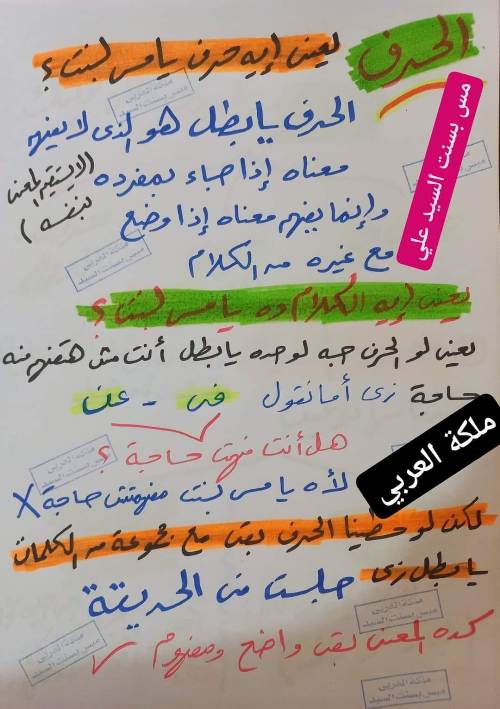 الحرف
يعنى إيه حرف يا مس بسنت؟
الحرف يا بطل هو الذى لا يفهم
معناه إذا جاء بمفرده
(لا يستقيم المعنى
بنفسه)
وإنما يفهم معناه إذا وضع
مع غيره من الكلام
مس بسنت السيد علي
يعنى إيه الكلام ده يا مس بسنت؟
يعنى لو الحرف جه لوحده يا بطل أنت مش هتفهم منه
حاجة زى أما نقول فى - على
هل أنت فهمت حاجة؟
ملكة العربي
لأه يا مس بسنت مفهمتش حاجة X
لكن لو حطينا الحرف بقى مع مجموعة من الكلمات
يا بطل زى جلست فى الحديقة
كده المعنى بقى واضح ومفهوم ✓
ملكة العربى
مس بسنت السيد